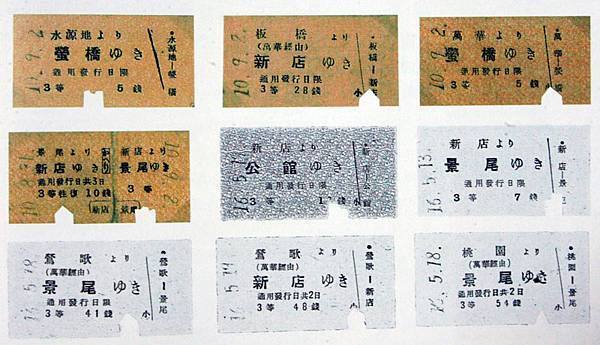 水源地より
螢橋ゆき
通用發行日限
3等 5錢
10.9.2.
水源地―螢橋
板橋より
(萬華經由)
新店ゆき
通用發行日限
3等 28錢
10.9.2.
板橋―新店
小
萬華より
螢橋ゆき
通用發行日限
3等 6錢
10.9.2.
萬華―螢橋
景尾より
新店ゆき
通用發行日共3日
3等往復10錢
新店より
景尾ゆき
3等
新店
景尾
新店より
公館ゆき
通用發行日限
3等
新店―公館
小
新店より
景尾ゆき
通用發行日限
3等 7錢
16.5.13.
新店―景
鶯歌より
(萬華經由)
景尾ゆき
通用發行日限
3等 41錢
鶯歌―景尾
小
鶯歌より
(萬華經由)
新店ゆき
通用發行日共2日
3等 48錢
鶯歌―新店
小
桃園より
(萬華經由)
景尾ゆき
通用發行日共2日
3等 54錢
5.18.
桃園―景尾
小